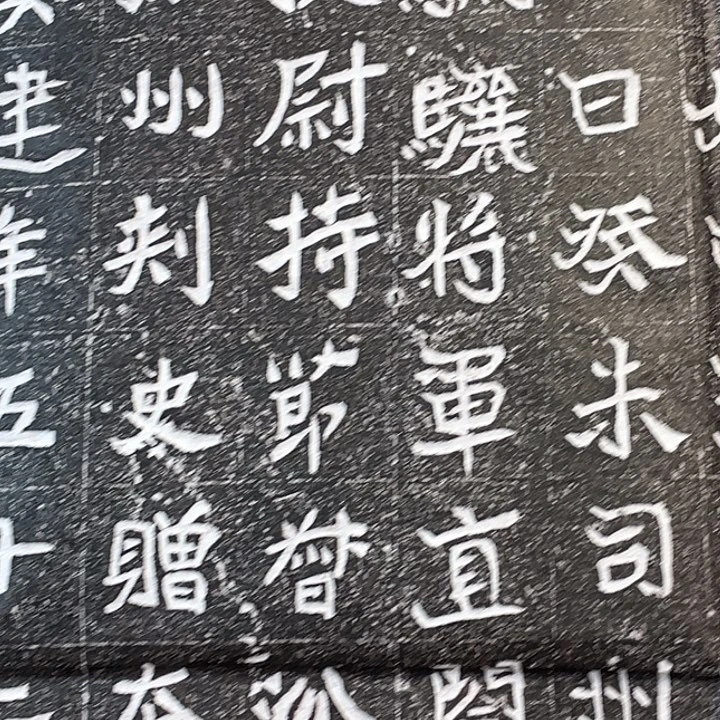 日癸未司州
驤將軍直閤
尉持節督
州刾史贈
建年五十